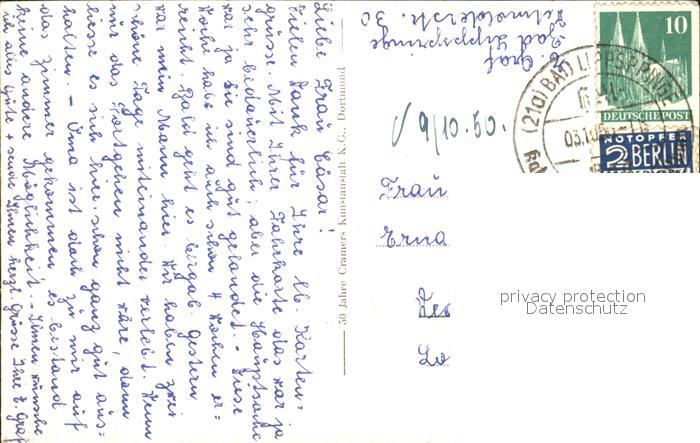 Liebe Frau Cäsar!
Vielen Dank für Ihre lb. Karten-
grüsse. Mit Ihrer Fahrkarte das war ja
sehr bedauerlich, aber die Hauptsache
war ja Sie sind gut gelandet. - Diese
Woche habe ich auch schon 4 Wochen er-
reicht. Bald geht es bergab. Gestern
war mein Mann hier. Wir haben zwei
schöne Tage miteinander verlebt. Wenn
nur das Fortgehen nicht wäre, dann
liesse es sich hier schon ganz gut aus-
halten. - Oma ist dann zu mir auf
das Zimmer gekommen es bestand
keine andere Möglichkeit. - Ihnen wünsche
ich alles Gute + sende Ihnen herzl. Grüsse Ihre E. Graf
50 Jahre Cramers Kunstanstalt K.G., Dortmund
E. Graf
Bad Lippspringe
30
9/10.50.
Frau
Erna
10
DEUTSCHE POST
NOTOPFER
2 BERLIN
(21a) BAD LIPPSPRINGE
privacy protection
Datenschutz